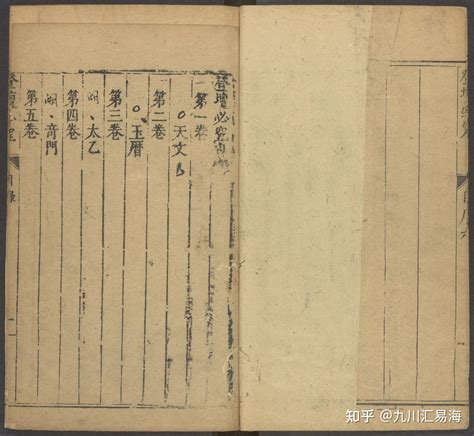 登壇必究目錄
第一卷
天文
第二卷
玉曆
第三卷
太乙
第四卷
奇門
第五卷
目錄
知乎 @九川汇易海